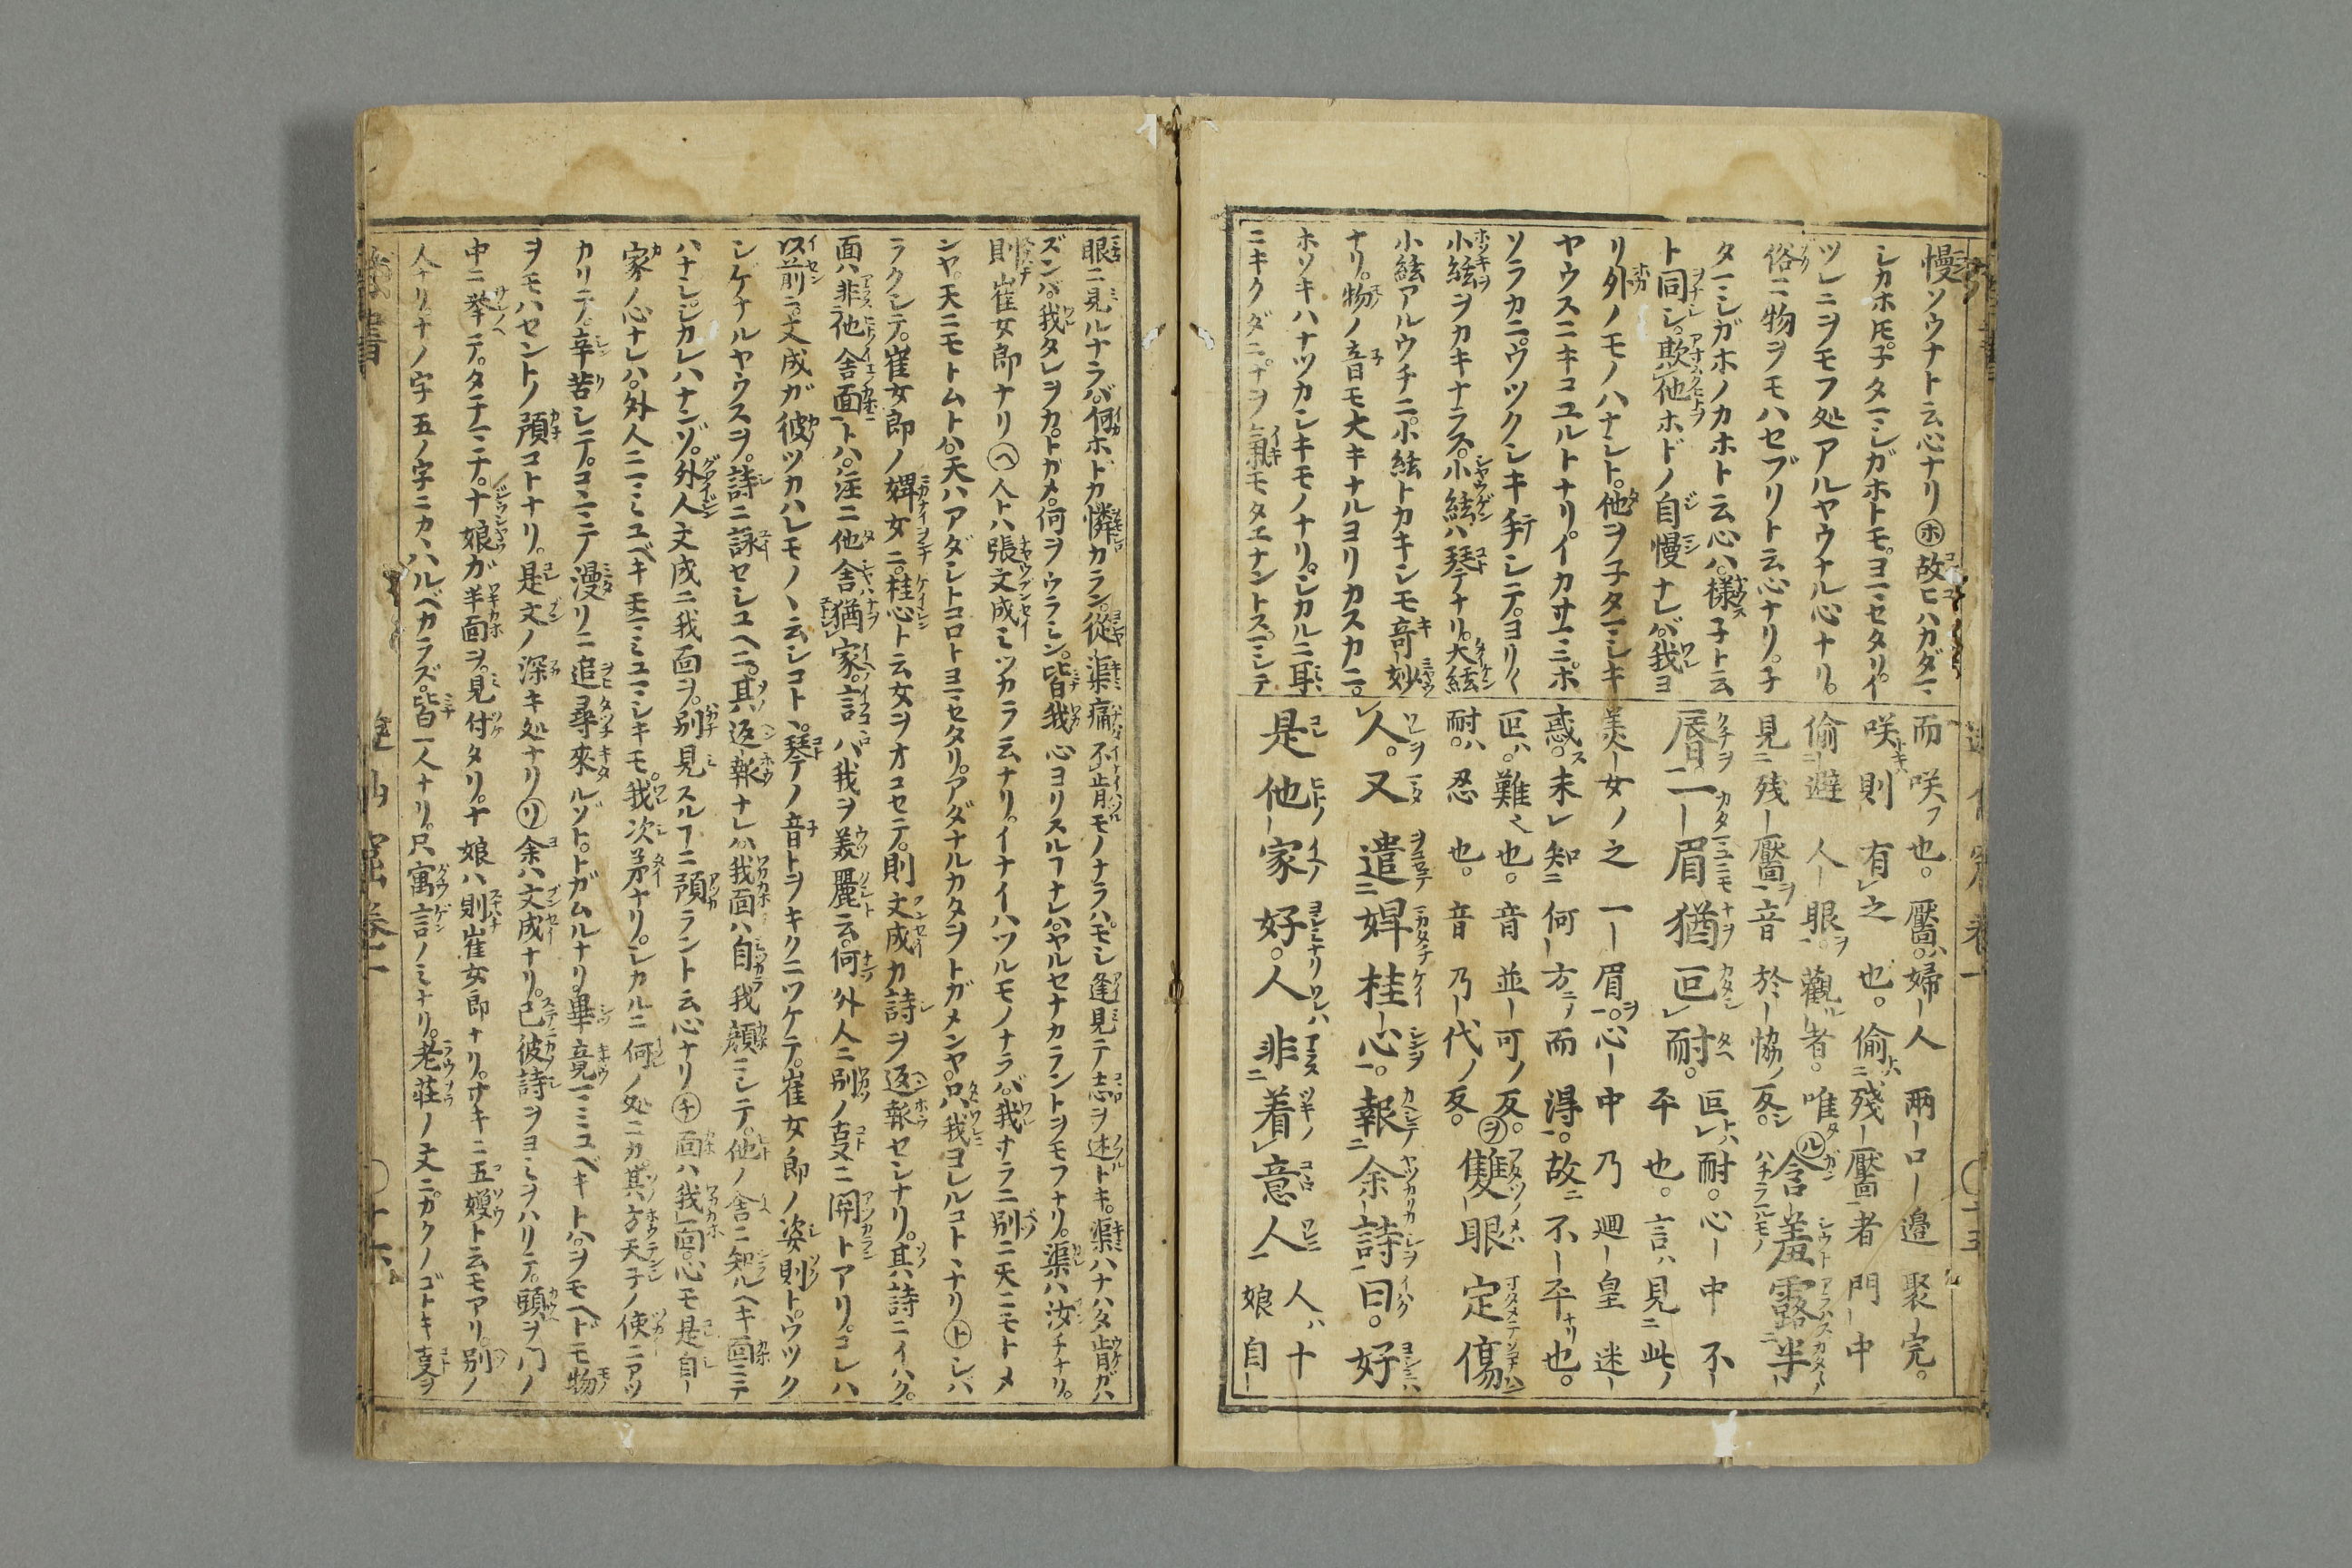 慢ソウナト云心ナリ㋭故ニハカダマ
シカホ𪜈子タマシガホトモヨマセタリイ
ツレニヲモフ処アルヤウナル心ナリ
俗ニ物ヲモハセブリト云心ナリ子
タマシガホノカホト云心ハ様子ト云
ト同シ欺他ホドノ自慢ナレバ我ヨ
リ外ノモノハナシト他ヲ子タマシキ
ヤウスニキコユルトナリイカサマニホ
ソラカニウツクシキ手シテヨリ〱
小絃ヲカキナラス小絃ハ琴ナリ大絃
小絃アルウチニ小絃トカキシモ奇妙
ナリ物ノ音モ大キナルヨリカスカニ
ホソキハナツカシキモノナリシカルニ耳
ニキクダニナヲ氣モタエナントスマシテ
而咲フ也靨ハ婦人兩口邉聚完
咲則有之也偷殘靨者門中
偷避人眼觀者唯㋸含羞露半
見殘靨音於協ノ反
唇一眉猶叵耐叵耐心中不
平也言ハ見此ノ
美女ノ之一眉心中乃廻皇迷
惑未知何方而得故不平也
叵ハ難也音並可ノ反㋾雙眼定傷
耐ハ忍也音乃代ノ反
人又遣婢桂心報余詩曰好
是他家好人非着意人
人ハ十
娘自
眼ニ見ルナラバ何ホドカ憐カラン從渠痛不肯モノナラハモシ逢見テ志ヲ述トキ渠ハナハタ肯ガハ
ズンバ我タレヲカトガメ何ヲウラミン皆我心ヨリスルヿナレバヤルセナカラントヲモフナリ渠ハ汝チナリ
則崔女郎ナリ㋬人トハ張文成ミツカラ云ナリイナイハツルモノナラバ我サラニ別ニ天ニモトメ
ンヤ天ニモトムトハ天ハアダシトコロトヨマセタリアダナルカタヲトガメンヤ只我ヨレルコトヽナリ㋣シバ
ラクシテ崔女郎ノ婢女ニ桂心ト云女ヲオコセテ則文成カ詩ヲ返報セシナリ其詩ニイハク
面ハ非他舎面トハ注ニ他舎猶家言ハ我ヲ美麗云何外人ニ別ノ叓ニ開トアリコレハ
以前ニ文成ガ彼ツカハレモノヽ云シコトヽ琴ノ音トヲキクニツケテ崔女郎ノ姿則トウツク
シゲナルヤウスヲ詩ニ詠セシユヘニ其返報ナレハ我面ハ自我顔ニシテ他ノ舎ニ知ルヘキ面ニテ
ハナシシカレハナンゾ外人文成ニ我面ヲ別見スルヿニ預ラント云心ナリ㋠面ハ我面心モ是自
家ノ心ナレハ外人ニミユベキ㕝ミユマシキモ我次第ナリシカルニ何ノ処ニカ其方天子ノ使ニアツ
カリニテ辛苦シテコヽニテ漫リニ追尋來ルゾトトガムルナリ畢竟マミユベキトハヲモヘドモ物
ヲモハセントノ預コトナリ是文ノ深キ処ナリ㋷余ハ文成ナリ已彼詩ヲヨミヲハリテ頭ヲ門ノ
中ニ挙テタチマチ十娘ガ半面ヲ見付タリ十娘ハ則崔女郎ナリサキニ五嫂ト云モアリ別ノ
人ナリ十ノ字五ノ字ニカヽハルベカラズ皆一人ナリ只寓言ノミナリ老莊ノ文ニカクノゴトキ叓ヲ